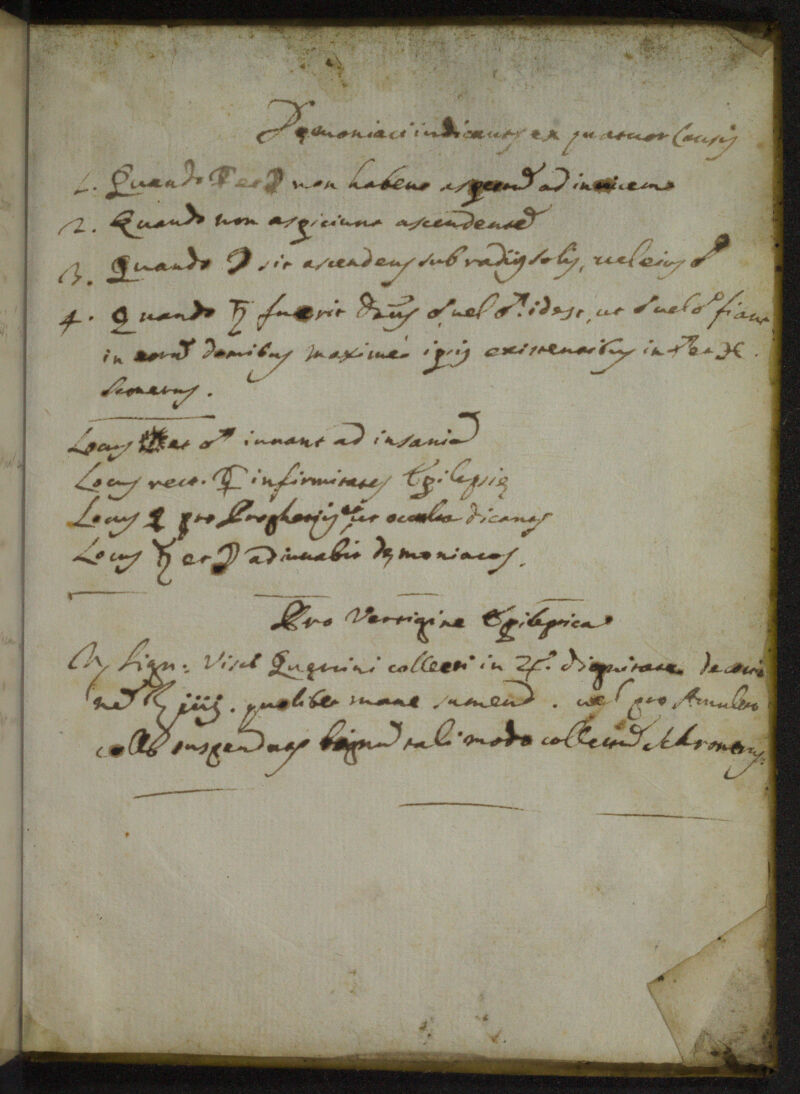 Dęmoniaci indicantur ex quatuor Causis
1. Quando ☿ et ☽ non habent aspectũ ad invicem
2. Quando non aspiciunt ascendentẽ
3. Quando ☽ sit ascendens sub radijs solis, vel eius ☍
4. Quando ♄ fuerit Dñus ☌ vel ☍. idest, ut ☌ vel ☍ fiant
in eorũ domibus maximè ipsis existentibus in et ♓.
Sconerus.
Locus et ♂ iuvant ad insaniã
Locus vero ☿ infirmitates Epilepsię
Locus pro Prophetijs ut occulta dicantur
Locus ♄ et ☽ adiuvabit dęmoniacos.
Pro Vertigine Epileptica
Lign: Visci Quercini collecti in ♃. dignitate
. quolibet mane sumend. vel pro Amuleto
collo suspendatur lignũ tali modo collectũ